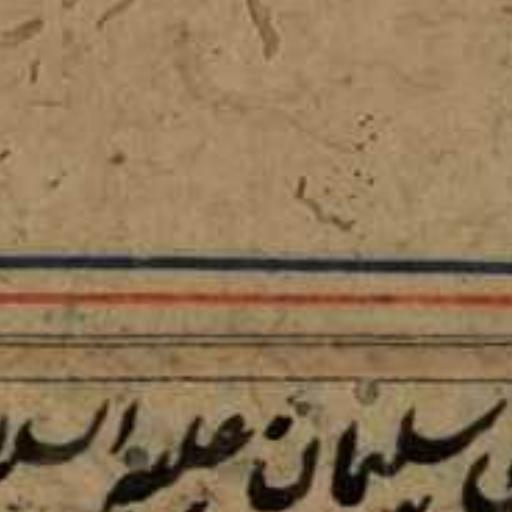 سلیمان علیه السلا